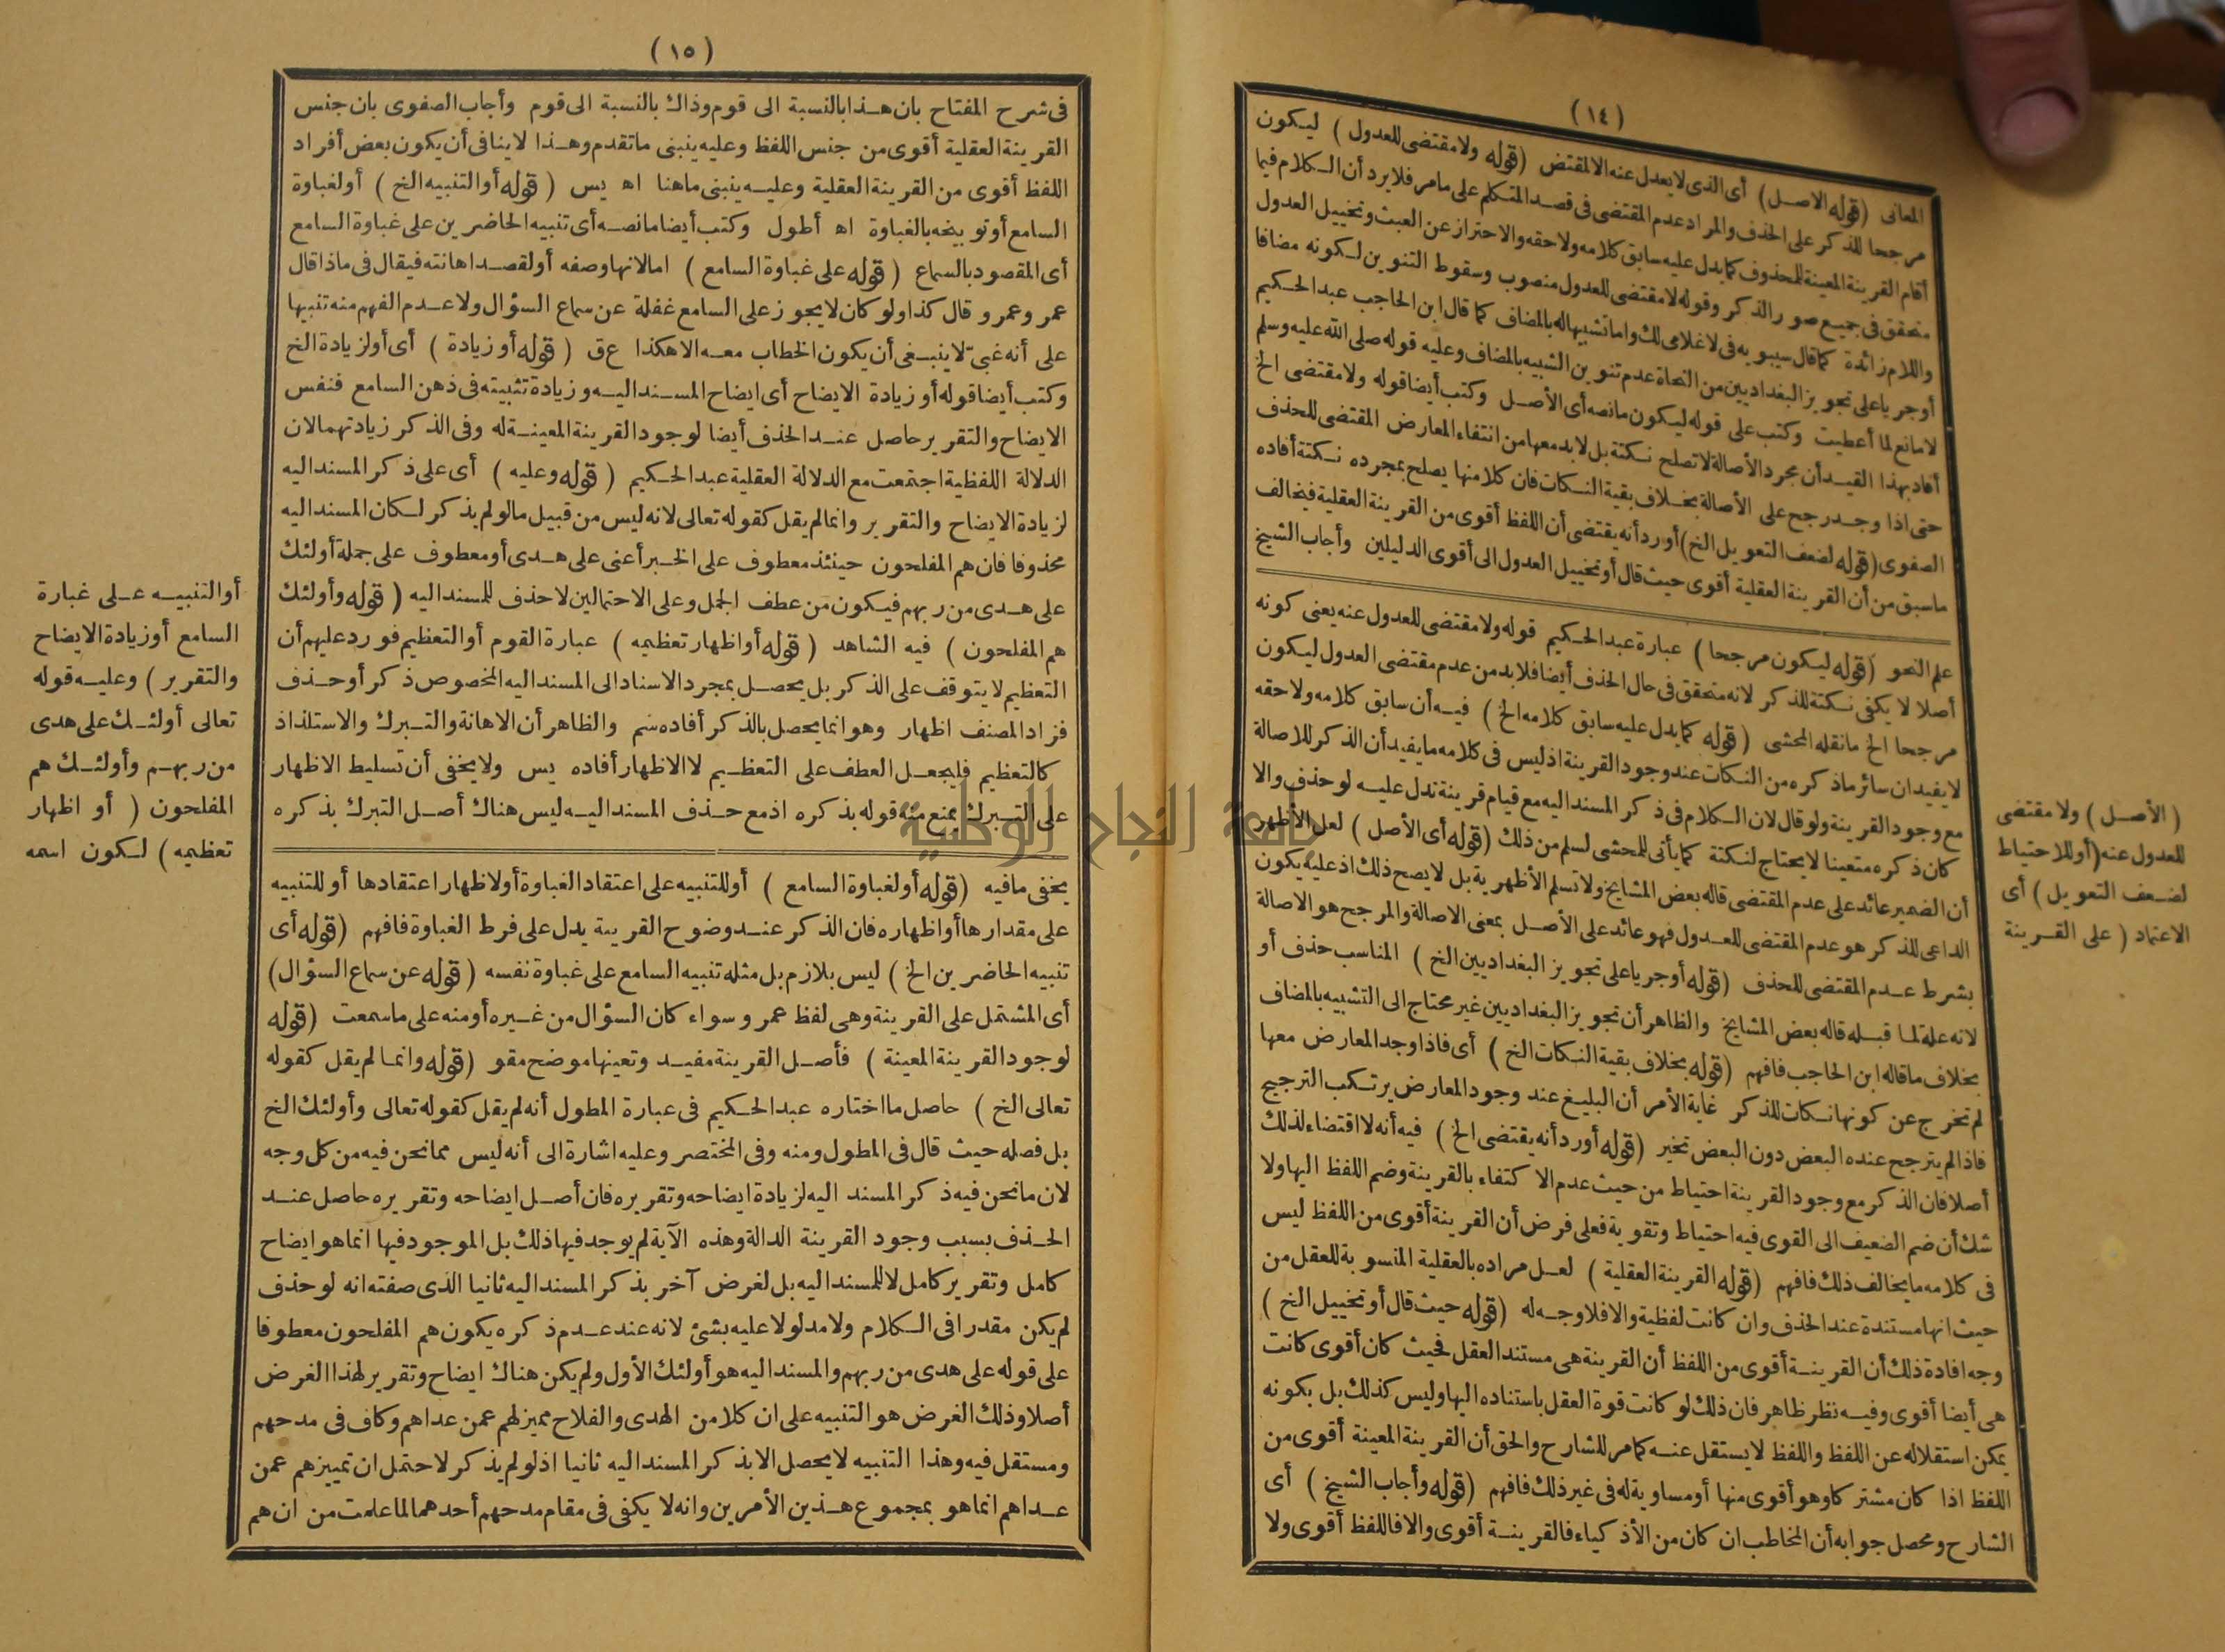 (١٤)
المعانى (قوله الاصل) أى الذى لا يعدل عنه الا لمقتض (قوله ولا مقتضى للعدول) ليكون
مرجحا للذكر على الحذف والمراد عدم المقتضى فى قصد المتكلم على ما مر فلا يرد أن الكلام فيما
أقام القرينة المعينة للمحذوف كما يدل عليه سابق كلامه ولاحقه والاحتراز عن العبث وتخييل العدول
متحقق فى جميع صور الذكر وقوله لا مقتضى للعدول منصوب وسقوط التنوين لكونه مضافا
واللام زائدة كما قال سيبويه فى لا غلامى لك واما تشبيها له بالمضاف كما قال ابن الحاجب عبد الحكيم
أو جريا على تجويز البغداديين من النحاة عدم تنوين الشبيه بالمضاف وعليه قوله صلى الله عليه وسلم
لا مانع لما أعطيت وكتب على قوله ليكون مانصه أى الأصل وكتب أيضا قوله ولا مقتضى الخ
أفاد بهذا القيد أن مجرد الأصالة لا تصلح نكتة بل لا بد معها من انتفاء المعارض المقتضى للحذف
حتى اذا وجد رجح على الأصالة بخلاف بقية النكات فان كلا منها يصلح بمجرده نكتة أفاده
الصفوى (قوله لضعف التعويل الخ) أورد أنه يقتضى أن اللفظ أقوى من القرينة العقلية فيخالف
ماسبق من أن القرينة العقلية أقوى حيث قال أو تخييل العدول الى أقوى الدليلين وأجاب الشيخ
علم النحو (قوله ليكون مرجحا) عبارة عبد الحكيم قوله ولا مقتضى للعدول عنه يعنى كونه
أصلا لا يكفى نكتة للذكر لانه متحقق فى حال الحذف أيضا فلا بد من عدم مقتضى العدول ليكون
مرجحا الخ ما نقله المحشى (قوله كما يدل عليه سابق كلامه الخ) فيه أن سابق كلامه ولاحقه
لا يفيدان سائر ماذكره من النكات عند وجود القرينة اذ ليس فى كلامه ما يفيد أن الذكر للاصالة
مع وجود القرينة ولو قال لان الكلام فى ذكر المسند اليه مع قيام قرينة تدل عليه لو حذف والا
كان ذكره متعينا لا يحتاج لنكتة كما يأتى للمحشى لسلم من ذلك (قوله أى الأصل) لعل الأظهر
أن الضمير عائد على عدم المقتضى قاله بعض المشايخ ولا تسلم الأظهرية بل لا يصح ذلك اذ عليه يكون
الداعى للذكر هو عدم المقتضى للعدول فهو عائد على الأصل بمعنى الاصالة والمرجح هو الاصالة
بشرط عدم المقتضى للحذف (قوله أو جريا على تجويز البغداديين الخ) المناسب حذف أو
لانه علة لما قبله قاله بعض المشايخ والظاهر أن تجويز البغداديين غير محتاج الى التشبيه بالمضاف
بخلاف ماقاله ابن الحاجب فافهم (قوله بخلاف بقية النكات الخ) أى فاذا وجد المعارض معها
لم تخرج عن كونها نكات للذكر غاية الأمر أن البليغ عند وجود المعارض يرتكب الترجيح
فاذا لم يترجح عنده البعض دون البعض تخير (قوله أورد أنه يقتضى الخ) فيه أنه لا اقتضاء لذلك
أصلا فان الذكر مع وجود القرينة احتياط من حيث عدم الاكتفاء بالقرينة وضم اللفظ اليها ولا
شك أن ضم الضعيف الى القوى فيه احتياط وتقوية فعلى فرض أن القرينة أقوى من اللفظ ليس
فى كلامه ما يخالف ذلك فافهم (قوله القرينة العقلية) لعل مراده بالعقلية المنسوبة للعقل من
حيث انها مستندة عند الحذف وان كانت لفظية والا فلا وجه له (قوله حيث قال أو تخييل الخ)
وجه افادة ذلك أن القرينة أقوى من اللفظ أن القرينة هى مستند العقل فحيث كان أقوى كانت
هى أيضا أقوى وفيه نظر ظاهر فان ذلك لو كانت قوة العقل باستناده اليها وليس كذلك بل بكونه
يمكن استقلاله عن اللفظ واللفظ لا يستقل عنه كما مر للشارح والحق أن القرينة المعينة أقوى من
اللفظ اذا كان مشتركا وهو أقوى منها أو مساوية له فى غير ذلك فافهم (قوله وأجاب الشيخ) أى
الشارح ومحصل جوابه أن المخاطب ان كان من الأذكياء فالقرينة أقوى والا فاللفظ أقوى ولا
(الأصل) ولا مقتضى
للعدول عنه (أو للاحتياط
لضعف التعويل) أى
الاعتماد (على القرينة
(١٥)
فى شرح المفتاح بان هذا بالنسبة الى قوم وذاك بالنسبة الى قوم وأجاب الصفوى بان جنس
القرينة العقلية أقوى من جنس اللفظ وعليه ينبنى ماتقدم وهذا لا ينافى أن يكون بعض أفراد
اللفظ أقوى من القرينة العقلية وعليه ينبنى ماهنا اه يس (قوله أو التنبيه الخ) أو لغباوة
السامع أو توبيخه بالغباوة اه أطول وكتب أيضا مانصه أى تنبيه الحاضرين على غباوة السامع
أى المقصود بالسماع (قوله على غباوة السامع) اما لانها وصفه أو لقصد اهانته فيقال فى ماذا قال
عمرو عمرو قال كذا ولو كان لا يجوز على السامع غفلة عن سماع السؤال ولا عدم الفهم منه تنبيها
على أنه غبىّ لا ينبغى أن يكون الخطاب معه الا هكذا ع ق (قوله أو زيادة) أى أو لزيادة الخ
وكتب أيضا قوله أو زيادة الايضاح أى ايضاح المسند اليه وزيادة تثبيته فى ذهن السامع فنفس
الايضاح والتقرير حاصل عند الحذف أيضا لوجود القرينة المعينة له وفى الذكر زيادتهما لان
الدلالة اللفظية اجتمعت مع الدلالة العقلية عبد الحكيم (قوله وعليه) أى على ذكر المسند اليه
لزيادة الايضاح والتقرير وانما لم يقل كقوله تعالى لانه ليس من قبيل مالو لم يذكر لكان المسند اليه
محذوفا فان هم المفلحون حينئذ معطوف على الخبر أعنى على هدى أو معطوف على جملة أولئك
على هدى من ربهم فيكون من عطف الجمل وعلى الاحتمالين لا حذف للمسند اليه (قوله وأولئك
هم المفلحون) فيه الشاهد (قوله أو اظهار تعظيمه) عبارة القوم أو التعظيم فورد عليهم أن
التعظيم لا يتوقف على الذكر بل يحصل بمجرد الاسناد الى المسند اليه المخصوص ذكر أو حذف
فزاد المصنف اظهار وهو انما يحصل بالذكر أفاده سم والظاهر أن الاهانة والتبرك والاستلذاذ
كالتعظيم فليجعل العطف على التعظيم لا الاظهار أفاده يس ولا يخفى أن تسليط الاظهار
على التبرك يمنع منه قوله بذكره اذ مع حذف المسند اليه ليس هناك أصل التبرك بذكره
يخفى مافيه (قوله أو لغباوة السامع) أو للتنبيه على اعتقاد الغباوة أو لاظهار اعتقادها أو للتنبيه
على مقدارها أو اظهاره فان الذكر عند وضوح القرينة يدل على فرط الغباوة فافهم (قوله أى
تنبيه الحاضرين الخ) ليس بلازم بل مثله تنبيه السامع على غباوة نفسه (قوله عن سماع السؤال)
أى المشتمل على القرينة وهى لفظ عمرو سواء كان السؤال من غيره أو منه على ماسمعت (قوله
لوجود القرينة المعينة) فأصل القرينة مفيد وتعينها موضح مقو (قوله وانما لم يقل كقوله
تعالى الخ) حاصل ما اختاره عبد الحكيم فى عبارة المطول أنه لم يقل كقوله تعالى وأولئك الخ
بل فصله حيث قال فى المطول ومنه وفى المختصر وعليه اشارة الى أنه ليس مما نحن فيه من كل وجه
لان مانحن فيه ذكر المسند اليه لزيادة ايضاحه وتقريره فان أصل ايضاحه وتقريره حاصل عند
الحذف بسبب وجود القرينة الدالة وهذه الآية لم يوجد فيها ذلك بل الموجود فيها انما هو ايضاح
كامل وتقرير كامل لا للمسند اليه بل لغرض آخر بذكر المسند اليه ثانيا الذى صفته انه لو حذف
لم يكن مقدرا فى الكلام ولا مدلولا عليه بشئ لانه عند عدم ذكره يكون هم المفلحون معطوفا
على قوله على هدى من ربهم والمسند اليه هو أولئك الأول ولم يكن هناك ايضاح وتقرير لهذا الغرض
أصلا وذلك الغرض هو التنبيه على ان كلا من الهدى والفلاح مميز لهم عمن عداهم وكاف فى مدحهم
ومستقل فيه وهذا التنبيه لا يحصل الا بذكر المسند اليه ثانيا اذ لو لم يذكر لاحتمل ان تمييزهم عمن
عداهم انما هو بمجموع هذين الأمرين وانه لا يكفى فى مقام مدحهم أحدهما لما علمت من ان هم
أو التنبيه على غبارة
السامع أو زيادة الايضاح
والتقرير) وعليه قوله
تعالى أولئك على هدى
من ربهم وأولئك هم
المفلحون (أو اظهار
تعظيمه) لكون اسمه
جامعة النجاح الوطنية